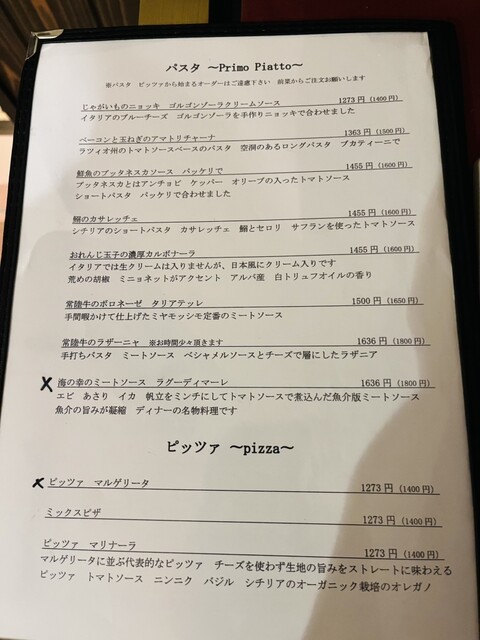 パスタ ～Primo Piatto～
※パスタ ピッツァから始まるオーダーはご遠慮下さい 前菜からご注文お願いします
じゃがいものニョッキ ゴルゴンゾーラクリームソース 1273円（1400円）
イタリアのブルーチーズ ゴルゴンゾーラを手作りニョッキで合わせました
ベーコンと玉ねぎのアマトリチャーナ 1363円（1500円）
ラツィオ州のトマトソースベースのパスタ 空洞のあるロングパスタ ブカティーニで
鮮魚のプッタネスカソース パッケリで 1455円（1600円）
プッタネスカとはアンチョビ ケッパー オリーブの入ったトマトソース
ショートパスタ パッケリで合わせました
鰯のカサレッチェ 1455円（1600円）
シチリアのショートパスタ カサレッチェ 鰯とセロリ サフランを使ったトマトソース
おれんじ玉子の濃厚カルボナーラ 1455円（1600円）
イタリアでは生クリームは入りませんが、日本風にクリーム入りです
荒めの胡椒 ミニョネットがアクセント アルバ産 白トリュフオイルの香り
常陸牛のボロネーゼ タリアテッレ 1500円（1650円）
手間暇かけて仕上げたミヤモッシモ定番のミートソース
常陸牛のラザーニャ ※お時間少々頂きます 1636円（1800円）
手打ちパスタ ミートソース ベシャメルソースとチーズで層にしたラザニア
海の幸のミートソース ラグーディマーレ 1636円（1800円）
エビ あさり イカ 帆立をミンチにしてトマトソースで煮込んだ魚介版ミートソース
魚介の旨みが凝縮 ディナーの名物料理です
ピッツァ ～pizza～
ピッツァ マルゲリータ 1273円（1400円）
ミックスピザ 1273円（1400円）
ピッツァ マリナーラ 1273円（1400円）
マルゲリータに並ぶ代表的なピッツァ チーズを使わず生地の旨みをストレートに味わえる
ピッツァ トマトソース ニンニク バジル シチリアのオーガニック栽培のオレガノ